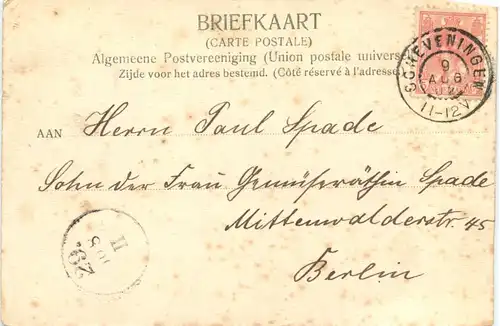 BRIEFKAART
(CARTE POSTALE)
Algemeene Postvereeniging (Union postale univers
Zijde voor het adres bestemd. (Côté réservé à l'adresse
SCHEVENINGEN
9
AUG
11-12V
AAN Herrn Paul Spade
Sohn der Frau Gemüseräthin Spade
Mittenwalderstr. 45
Berlin